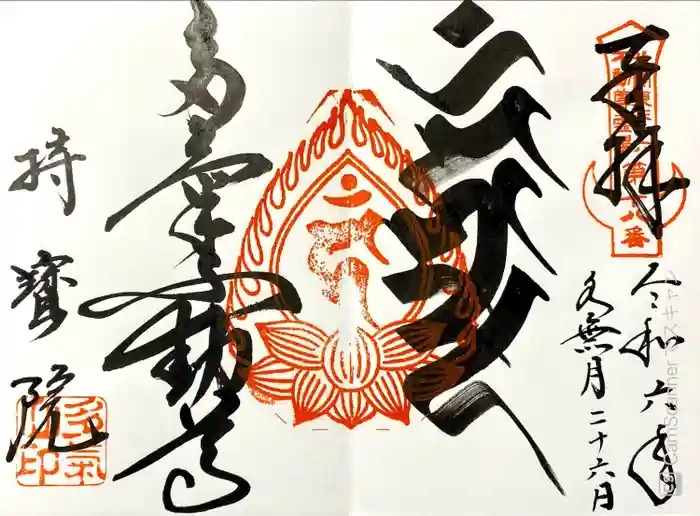 奉拝
第十八番
令和六年
水無月二十六日
多氣不動尊
持寳院
CamScannerでスキャン